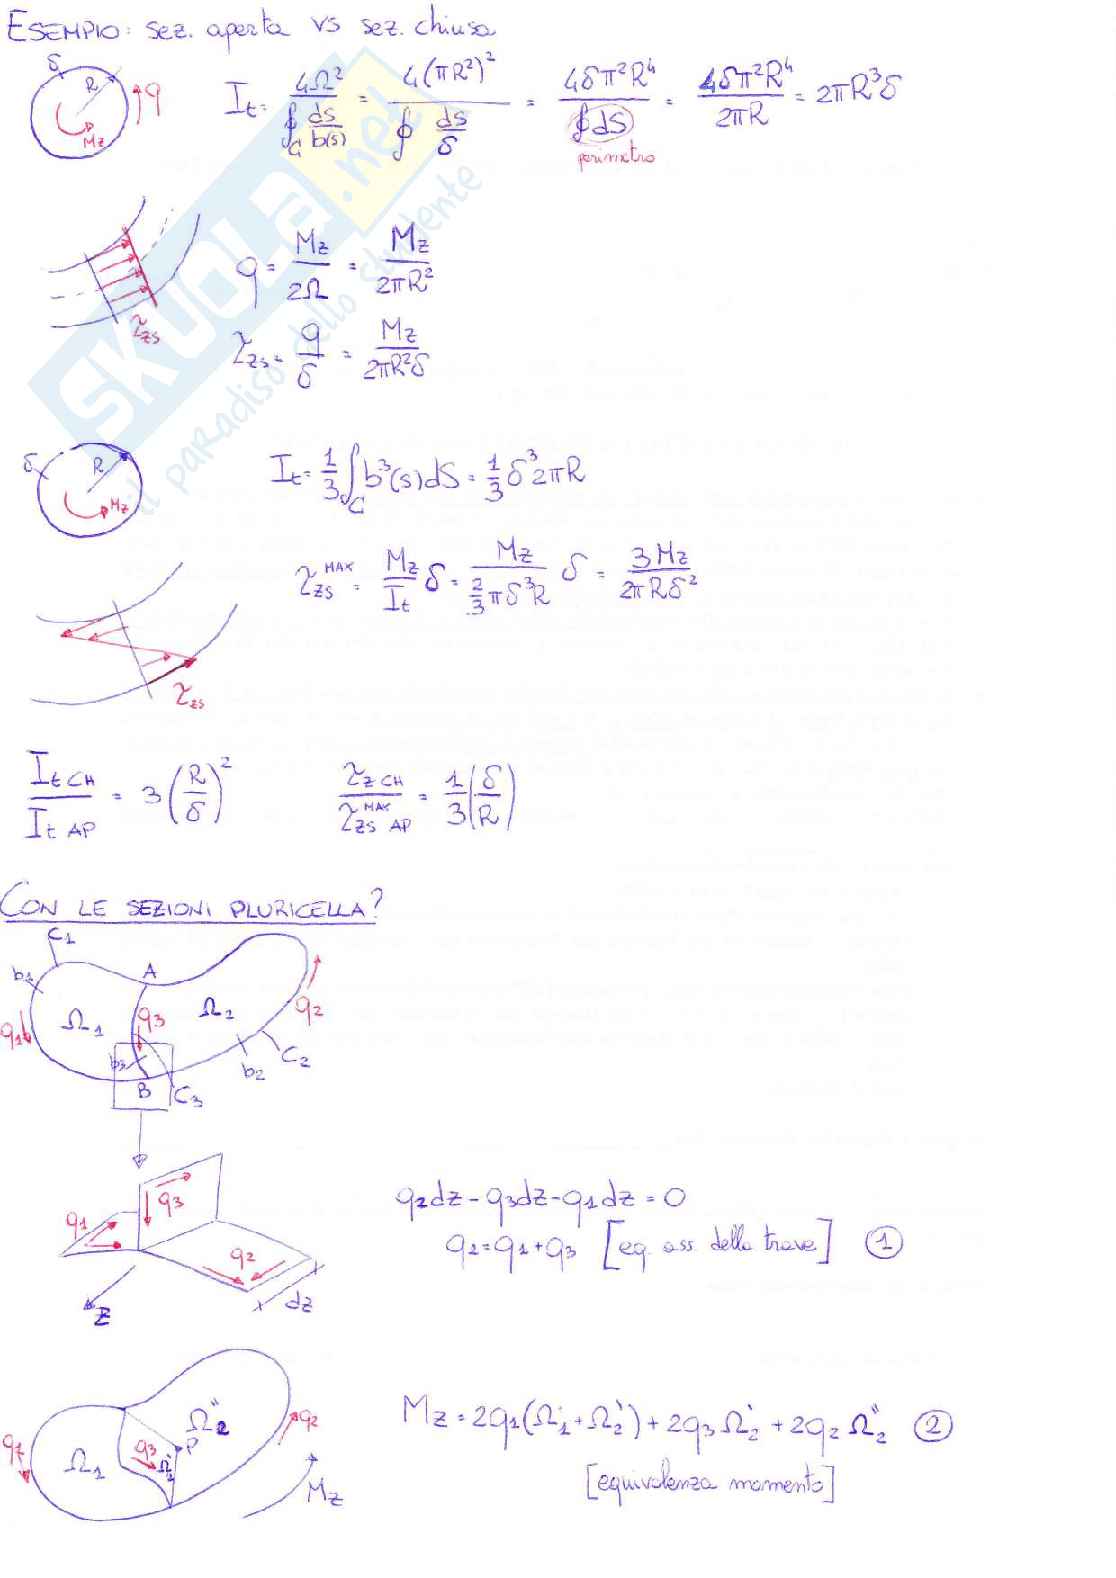 ESEMPIO: sez. aperta vs sez. chiusa
δ R q Mz
It = 4Ω² / ∮c ds/b(s) = 4(πR²)² / ∮ ds/δ = 4δπ²R⁴ / ∮ds = 4δπ²R⁴ / 2πR = 2πR³δ
perimetro
q = Mz / 2Ω = Mz / 2πR²
τzs
τzs = q / δ = Mz / 2πR²δ
SKUOLA.net
il paradiso dello studente
δ R Mz
It = 1/3 ∫c b³(s)ds = 1/3 δ³2πR
τzs MAX = Mz / It δ = Mz / (2/3 πδ³R) δ = 3Mz / 2πRδ²
τzs
It CH / It AP = 3(R/δ)²
τz CH / τzs MAX AP = 1/3 (δ/R)
CON LE SEZIONI PLURICELLA?
C1
b1 A
q1 Ω1 q3 Ω2 q2
b3 b2 C2
B C3
q1 q3
q2
z dz
q2dz - q3dz - q1dz = 0
q2 = q1 + q3 [eq. ass. della trave] 1
Ω"2 q2
q1 Ω1 q3 Ω'2 P
Mz
Mz = 2q1(Ω1 + Ω2') + 2q3Ω2' + 2q2Ω2" 2
[equivalenza momento]